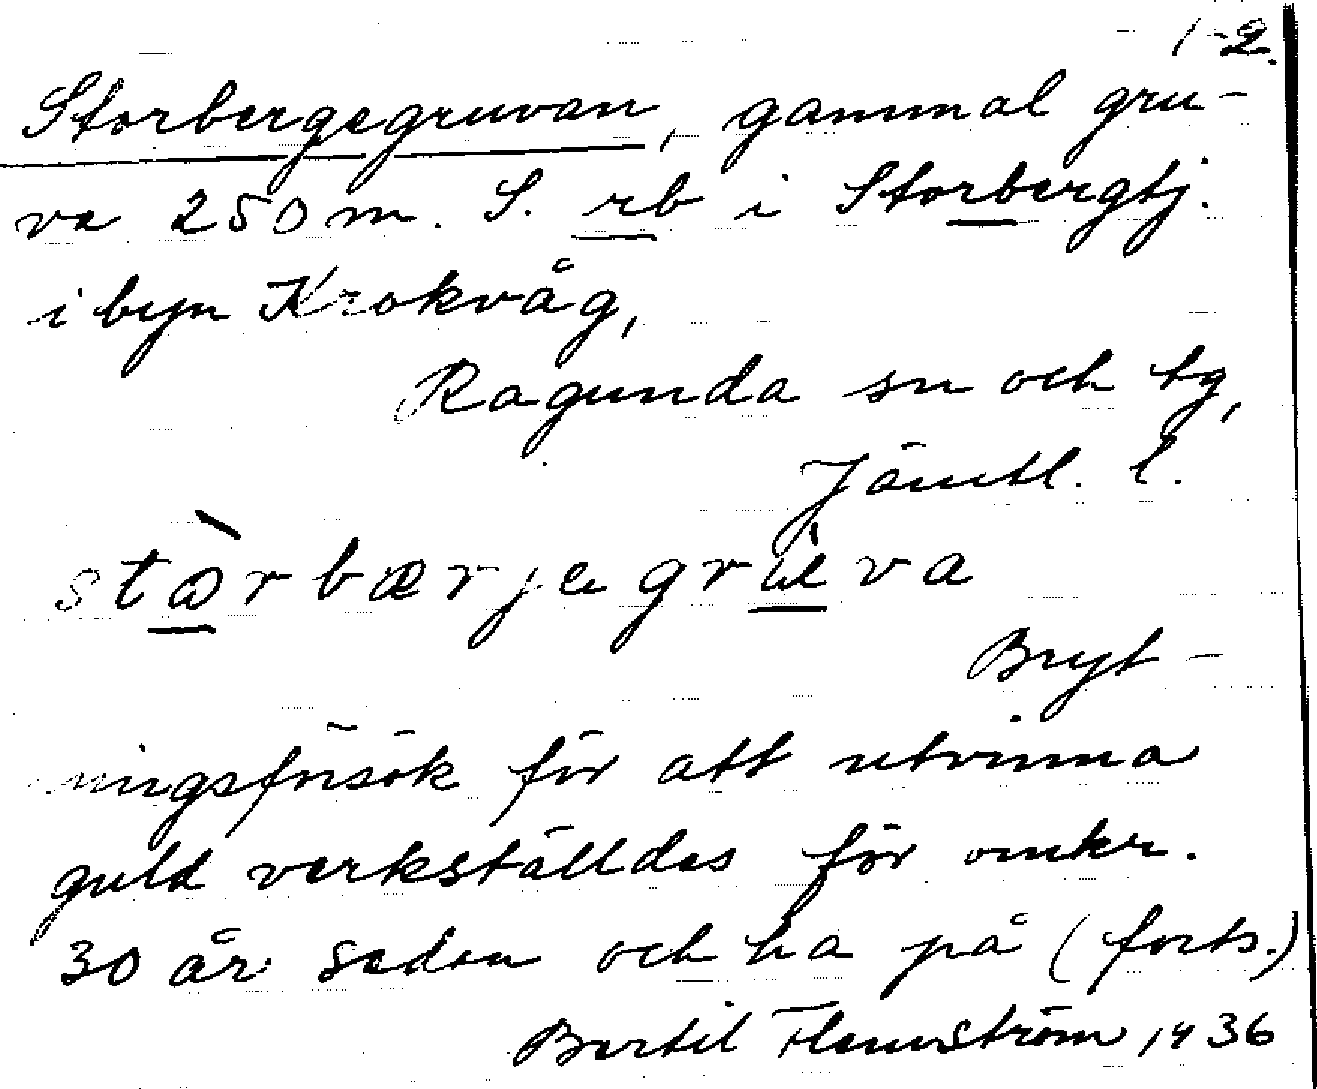 1-2.
Storbergegruvan, gammal gru-
va 250 m. S. rb i Storbergtj.
i byn Krokvåg,
Ragunda sn och tg,
Jämtl. l.
stɷ̀rbærjegrùeva
Bryt-
ningsförsök för att utvinna
guld verkställdes för omkr.
30 år sedan och ha på (forts.)
Bertil Flemström, 1936